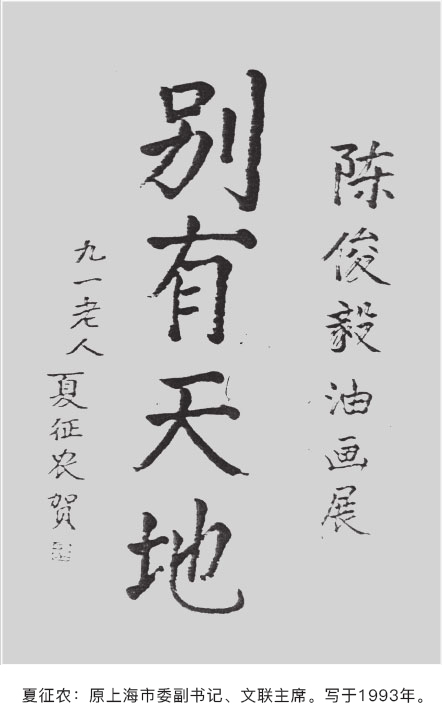 陈俊毅油画展
别有天地
九一老人夏征农贺
夏征农：原上海市委副书记、文联主席。写于1993年。